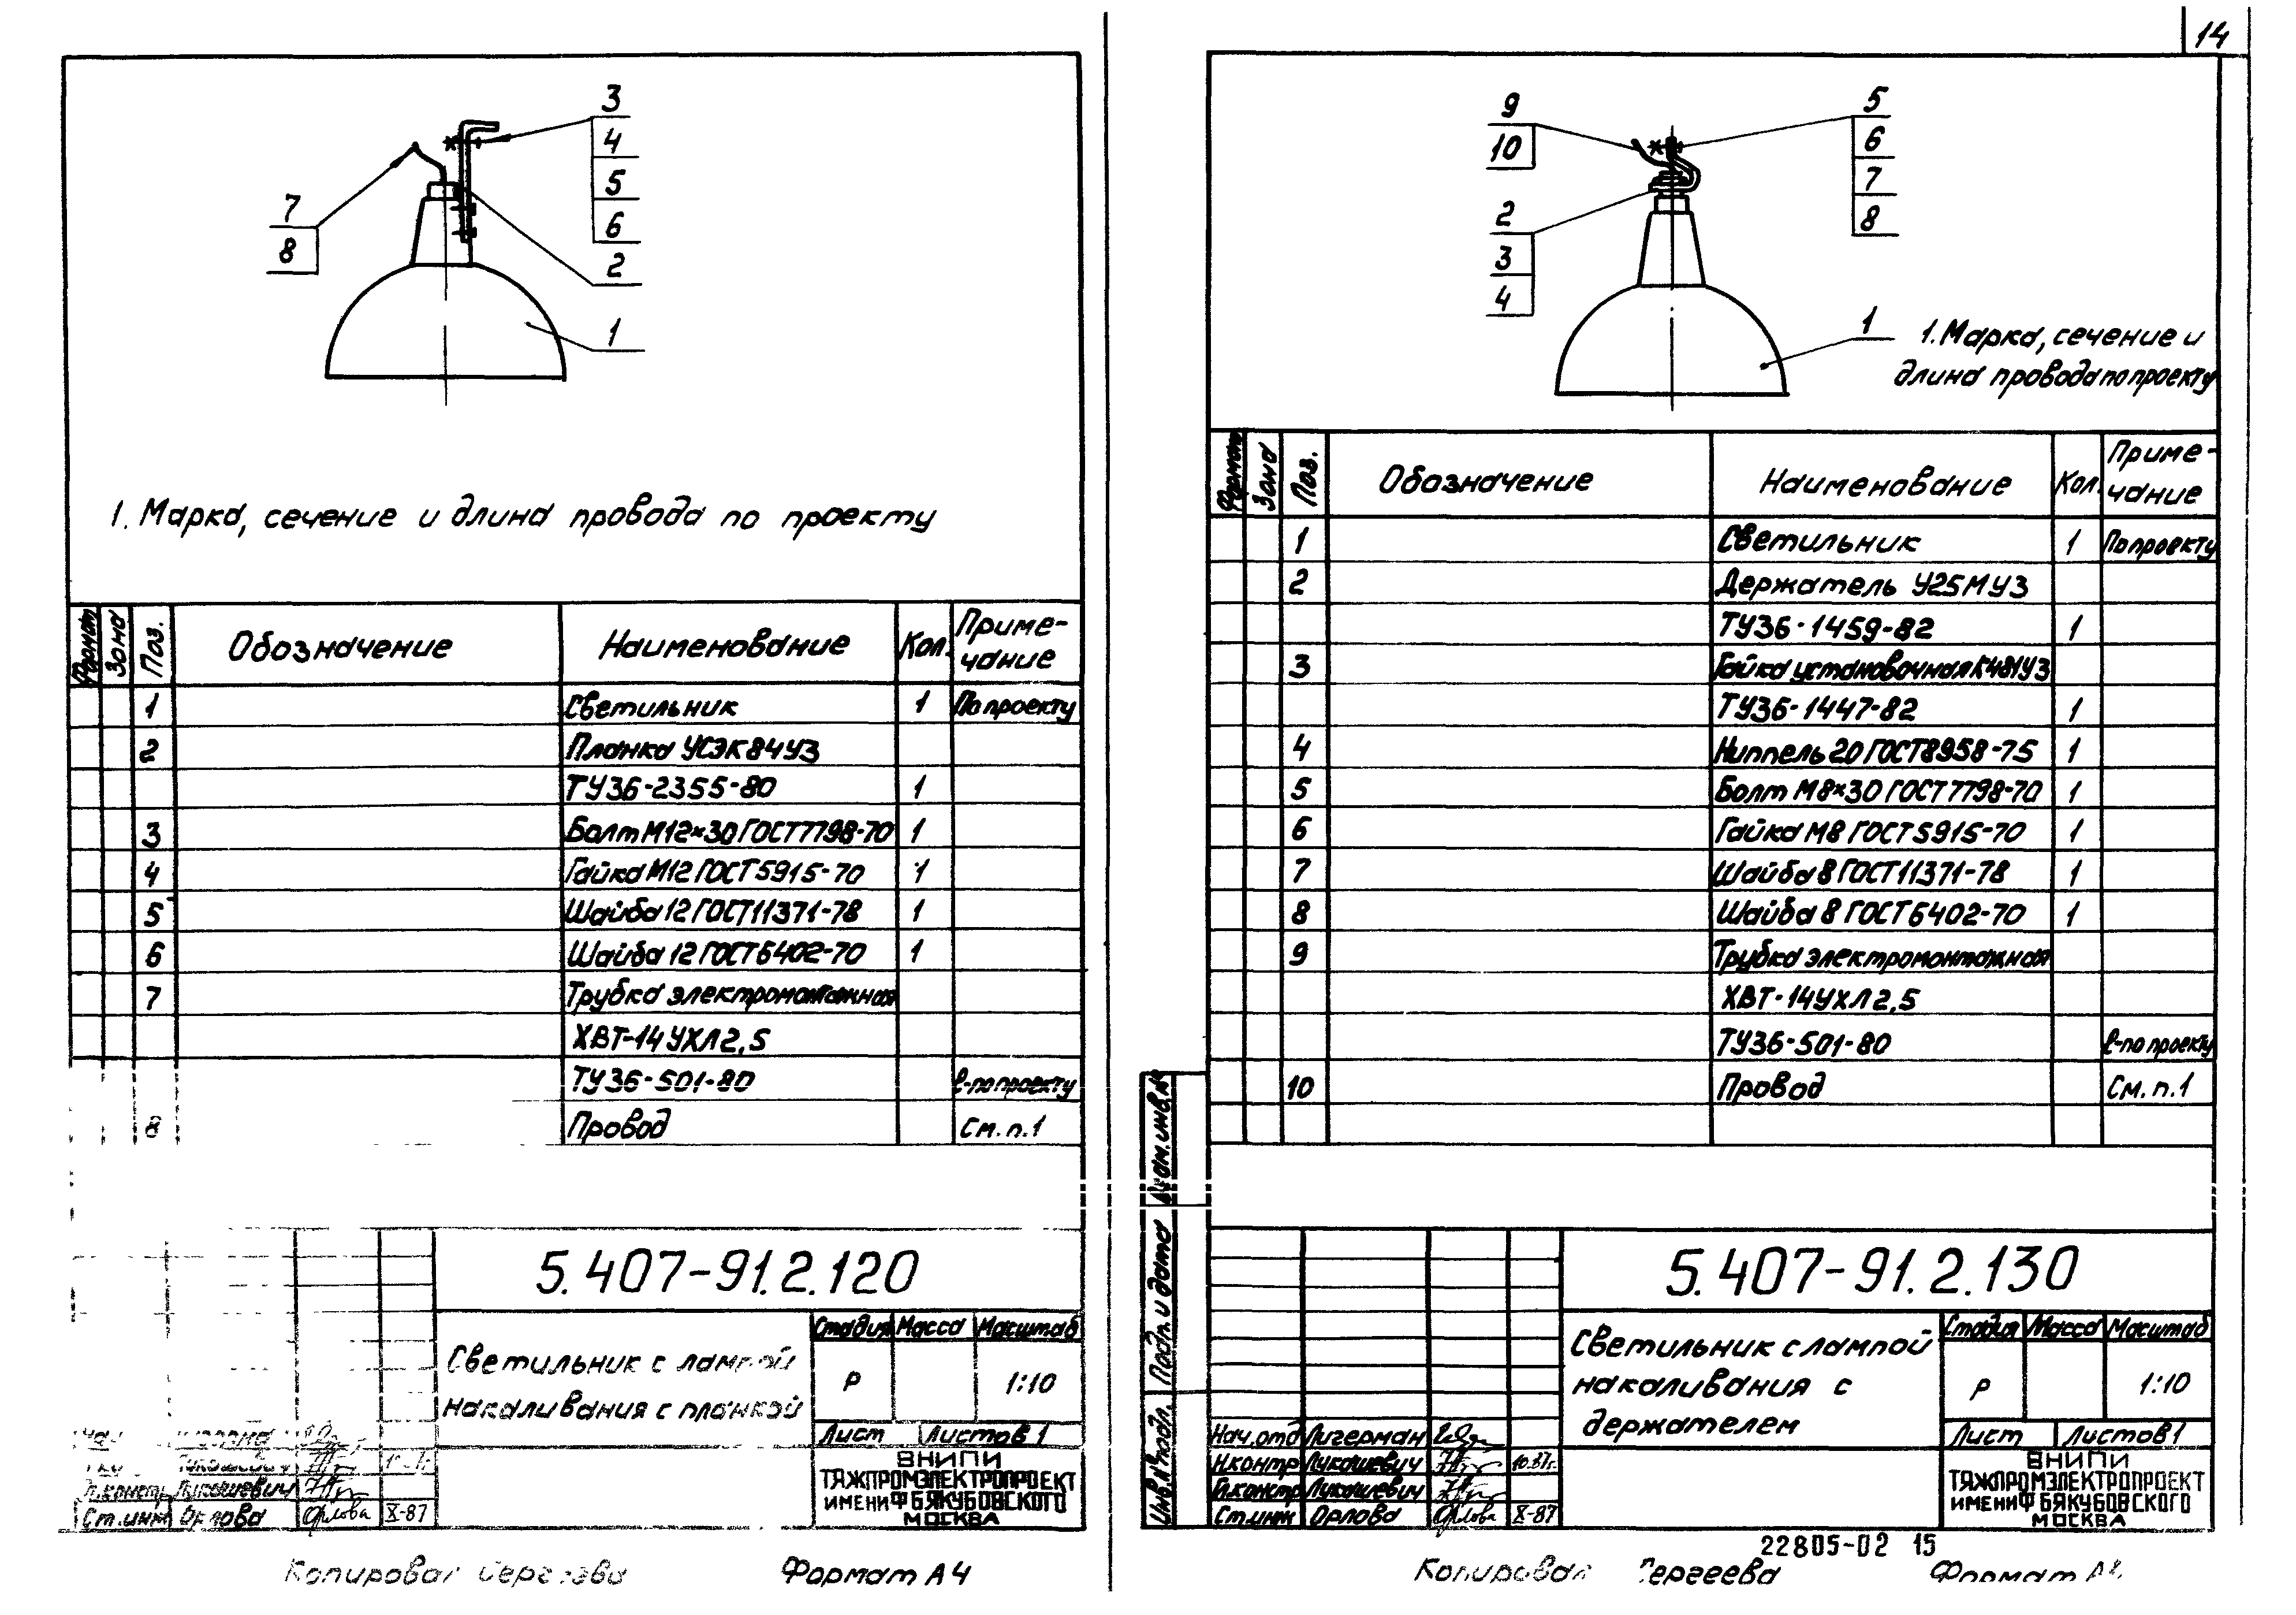 14
3
4
5
6
2
1
7
8
1. Марка, сечение и длина провода по проекту
Формат Зона Поз. Обозначение Наименование Кол. Приме-
чание
1 Светильник 1 По проекту
2 Планка УСЭК84У3
ТУ36-2355-80 1
3 Болт М12×30 ГОСТ7798-70 1
4 Гайка М12 ГОСТ5915-70 1
5 Шайба 12 ГОСТ11371-78 1
6 Шайба 12 ГОСТ6402-70 1
7 Трубка электромонтажная
ХВТ-14УХЛ2,5
ТУ36-501-80 ℓ-по проекту
8 Провод См. п.1
5.407-91.2.120
Светильник с лампой
накаливания с планкой
Стадия Масса Масштаб
Р 1:10
Лист Листов 1
ВНИПИ
ТЯЖПРОМЭЛЕКТРОПРОЕКТ
ИМЕНИ Ф.Б.ЯКУБОВСКОГО
МОСКВА
Лукашевич
Ст.инж Орлова Орлова X-87
Копировал Сергеева Формат А4
9
10
2
3
4
5
6
7
8
1
1. Марка, сечение и
длина провода по проекту
Формат Зона Поз. Обозначение Наименование Кол. Приме-
чание
1 Светильник 1 По проекту
2 Держатель У25МУ3
ТУ36-1459-82 1
3 Гайка установочная К481У3
ТУ36-1447-82 1
4 Ниппель 20 ГОСТ8958-75 1
5 Болт М8×30 ГОСТ7798-70 1
6 Гайка М8 ГОСТ5915-70 1
7 Шайба 8 ГОСТ11371-78 1
8 Шайба 8 ГОСТ6402-70 1
9 Трубка электромонтажная
ХВТ-14УХЛ2,5
ТУ36-501-80 ℓ-по проекту
10 Провод См. п.1
Взам.инв.№
Подп. и дата
Инв.№ подл.
5.407-91.2.130
Светильник с лампой
накаливания с
держателем
Стадия Масса Масштаб
Р 1:10
Лист Листов 1
ВНИПИ
ТЯЖПРОМЭЛЕКТРОПРОЕКТ
ИМЕНИ Ф.Б.ЯКУБОВСКОГО
МОСКВА
Нач.отд Лигерман
Н.контр Лукашевич 10.87г.
Гл.констр Лукашевич
Ст.инж Орлова Орлова X-87
22805-02 15
Копировал Сергеева Формат А4